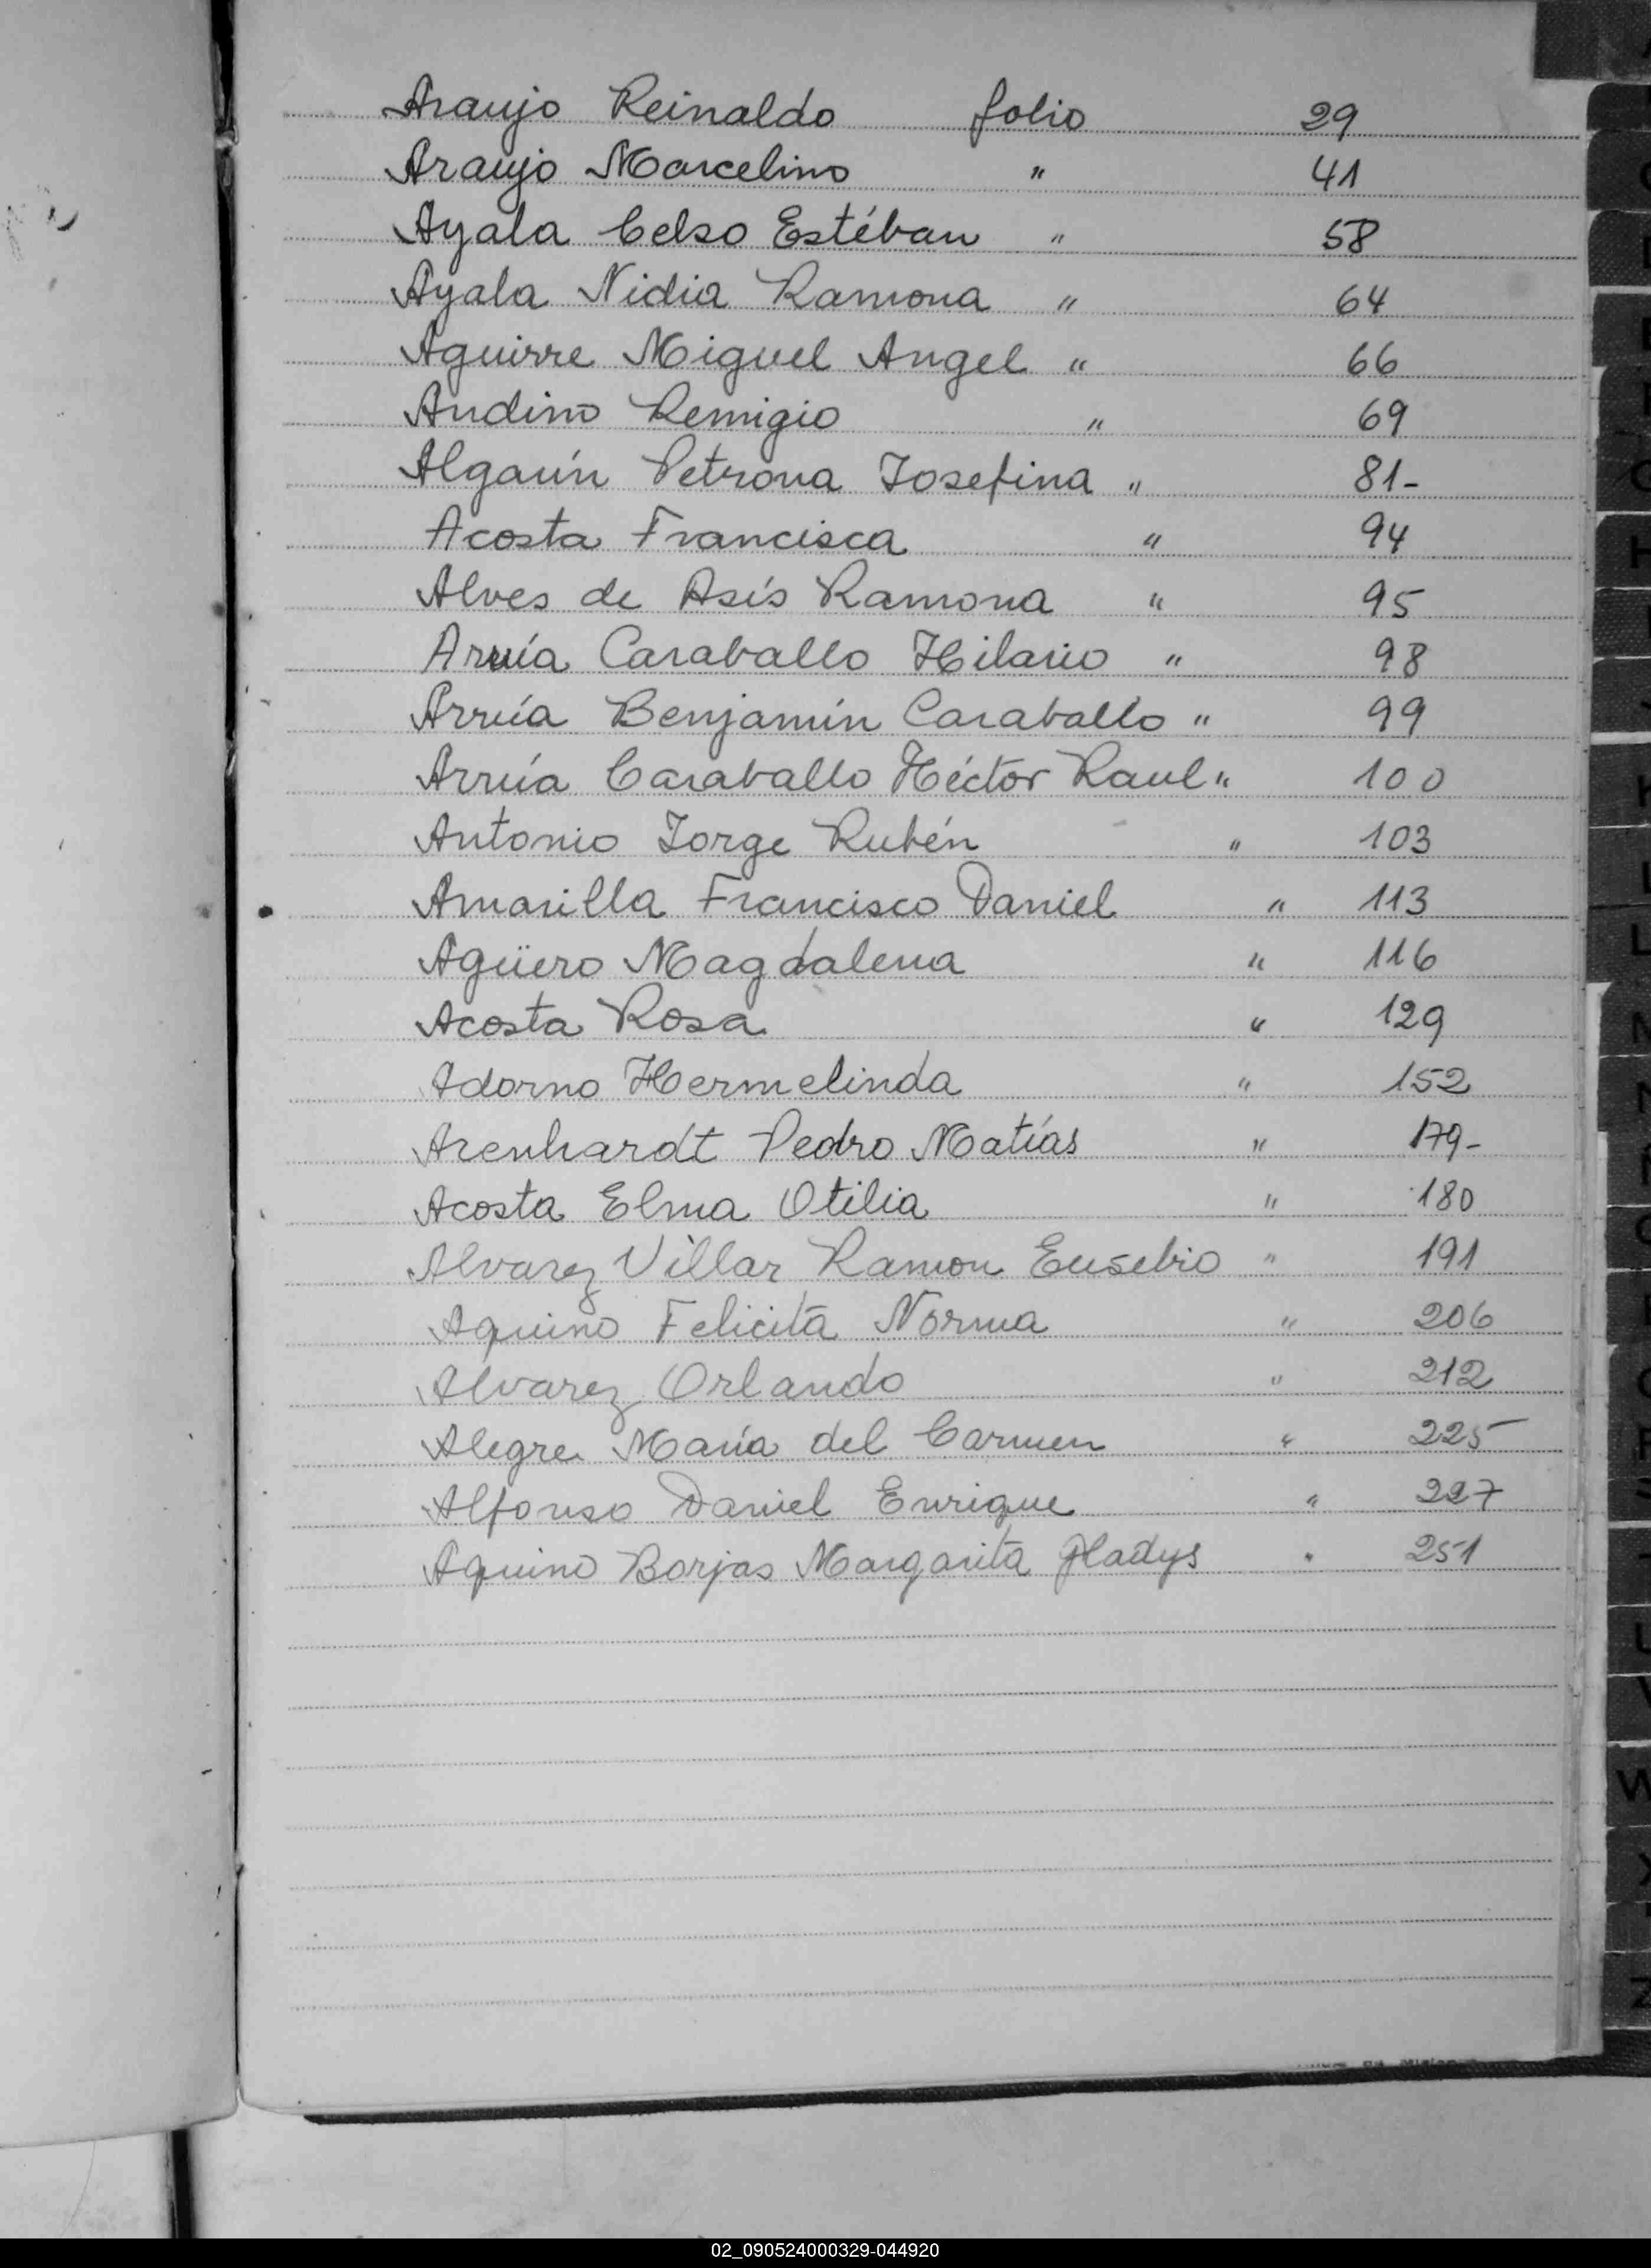 Araujo Reinaldo folio 29
Araujo Marcelino " 41
Ayala Celso Estéban " 58
Ayala Nidia Ramona " 64
Aguirre Miguel Angel " 66
Andino Remigio " 69
Algarín Petrona Josefina " 81-
Acosta Francisca " 94
Alves de Asís Ramona " 95
Arrúa Caraballo Hilario " 98
Arrúa Benjamín Caraballo " 99
Arrúa Caraballo Héctor Raul " 100
Antonio Jorge Rubén " 103
Amarilla Francisco Daniel " 113
Agüero Magdalena " 116
Acosta Rosa " 129
Adorno Hermelinda " 152
Arenhardt Pedro Matías " 179-
Acosta Elma Otilia " 180
Alvarez Villar Ramon Eusebio " 191
Aquino Felicita Norma " 206
Alvarez Orlando " 212
Alegre María del Carmen " 225
Alfonso Daniel Enrique " 227
Aquino Borjas Margarita Gladys " 251
02_090524000329-044920